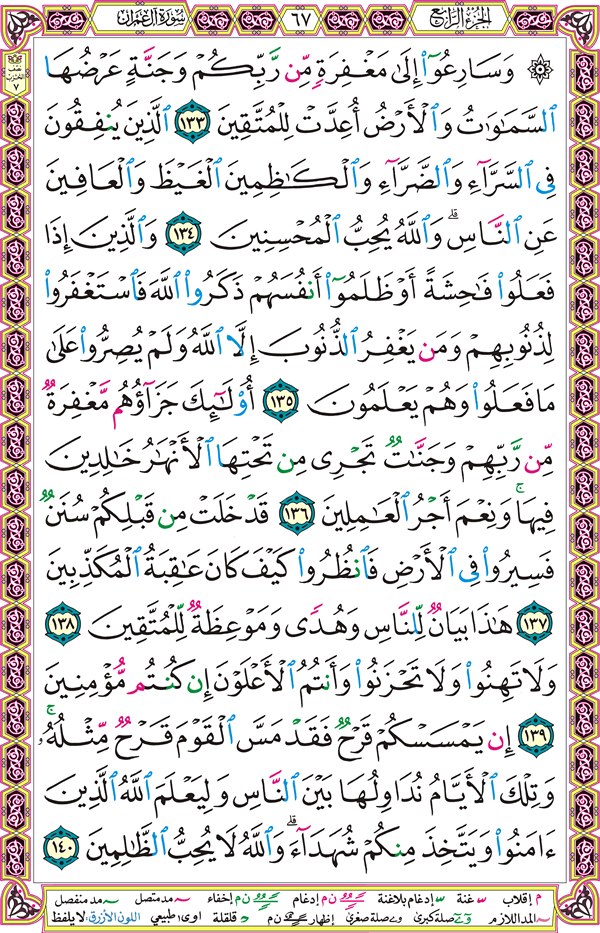 سورة آل عمران ٦٧ الجزء الرابع
نصف الحزب ٧
۞ وَسَارِعُوٓا۟ إِلَىٰ مَغْفِرَةٍ مِّن رَّبِّكُمْ وَجَنَّةٍ عَرْضُهَا
ٱلسَّمَـٰوَٰتُ وَٱلْأَرْضُ أُعِدَّتْ لِلْمُتَّقِينَ ١٣٣ ٱلَّذِينَ يُنفِقُونَ
فِى ٱلسَّرَّآءِ وَٱلضَّرَّآءِ وَٱلْكَـٰظِمِينَ ٱلْغَيْظَ وَٱلْعَافِينَ
عَنِ ٱلنَّاسِ ۗ وَٱللَّهُ يُحِبُّ ٱلْمُحْسِنِينَ ١٣٤ وَٱلَّذِينَ إِذَا
فَعَلُوا۟ فَـٰحِشَةً أَوْ ظَلَمُوٓا۟ أَنفُسَهُمْ ذَكَرُوا۟ ٱللَّهَ فَٱسْتَغْفَرُوا۟
لِذُنُوبِهِمْ وَمَن يَغْفِرُ ٱلذُّنُوبَ إِلَّا ٱللَّهُ وَلَمْ يُصِرُّوا۟ عَلَىٰ
مَا فَعَلُوا۟ وَهُمْ يَعْلَمُونَ ١٣٥ أُو۟لَـٰٓئِكَ جَزَآؤُهُم مَّغْفِرَةٌ
مِّن رَّبِّهِمْ وَجَنَّـٰتٌ تَجْرِى مِن تَحْتِهَا ٱلْأَنْهَـٰرُ خَـٰلِدِينَ
فِيهَا ۚ وَنِعْمَ أَجْرُ ٱلْعَـٰمِلِينَ ١٣٦ قَدْ خَلَتْ مِن قَبْلِكُمْ سُنَنٌ
فَسِيرُوا۟ فِى ٱلْأَرْضِ فَٱنظُرُوا۟ كَيْفَ كَانَ عَـٰقِبَةُ ٱلْمُكَذِّبِينَ
١٣٧ هَـٰذَا بَيَانٌ لِّلنَّاسِ وَهُدًى وَمَوْعِظَةٌ لِّلْمُتَّقِينَ ١٣٨
وَلَا تَهِنُوا۟ وَلَا تَحْزَنُوا۟ وَأَنتُمُ ٱلْأَعْلَوْنَ إِن كُنتُم مُّؤْمِنِينَ
١٣٩ إِن يَمْسَسْكُمْ قَرْحٌ فَقَدْ مَسَّ ٱلْقَوْمَ قَرْحٌ مِّثْلُهُۥ ۚ
وَتِلْكَ ٱلْأَيَّامُ نُدَاوِلُهَا بَيْنَ ٱلنَّاسِ وَلِيَعْلَمَ ٱللَّهُ ٱلَّذِينَ
ءَامَنُوا۟ وَيَتَّخِذَ مِنكُمْ شُهَدَآءَ ۗ وَٱللَّهُ لَا يُحِبُّ ٱلظَّـٰلِمِينَ ١٤٠
م إقلاب غنة إدغام بلاغنة ن م إدغام ن م إخفاء مد متصل مد منفصل
المد اللازم صلة كبرى صلة صغرى إظهار ن م قلقلة اوى طبيعي اللون الأزرق: لا يلفظ